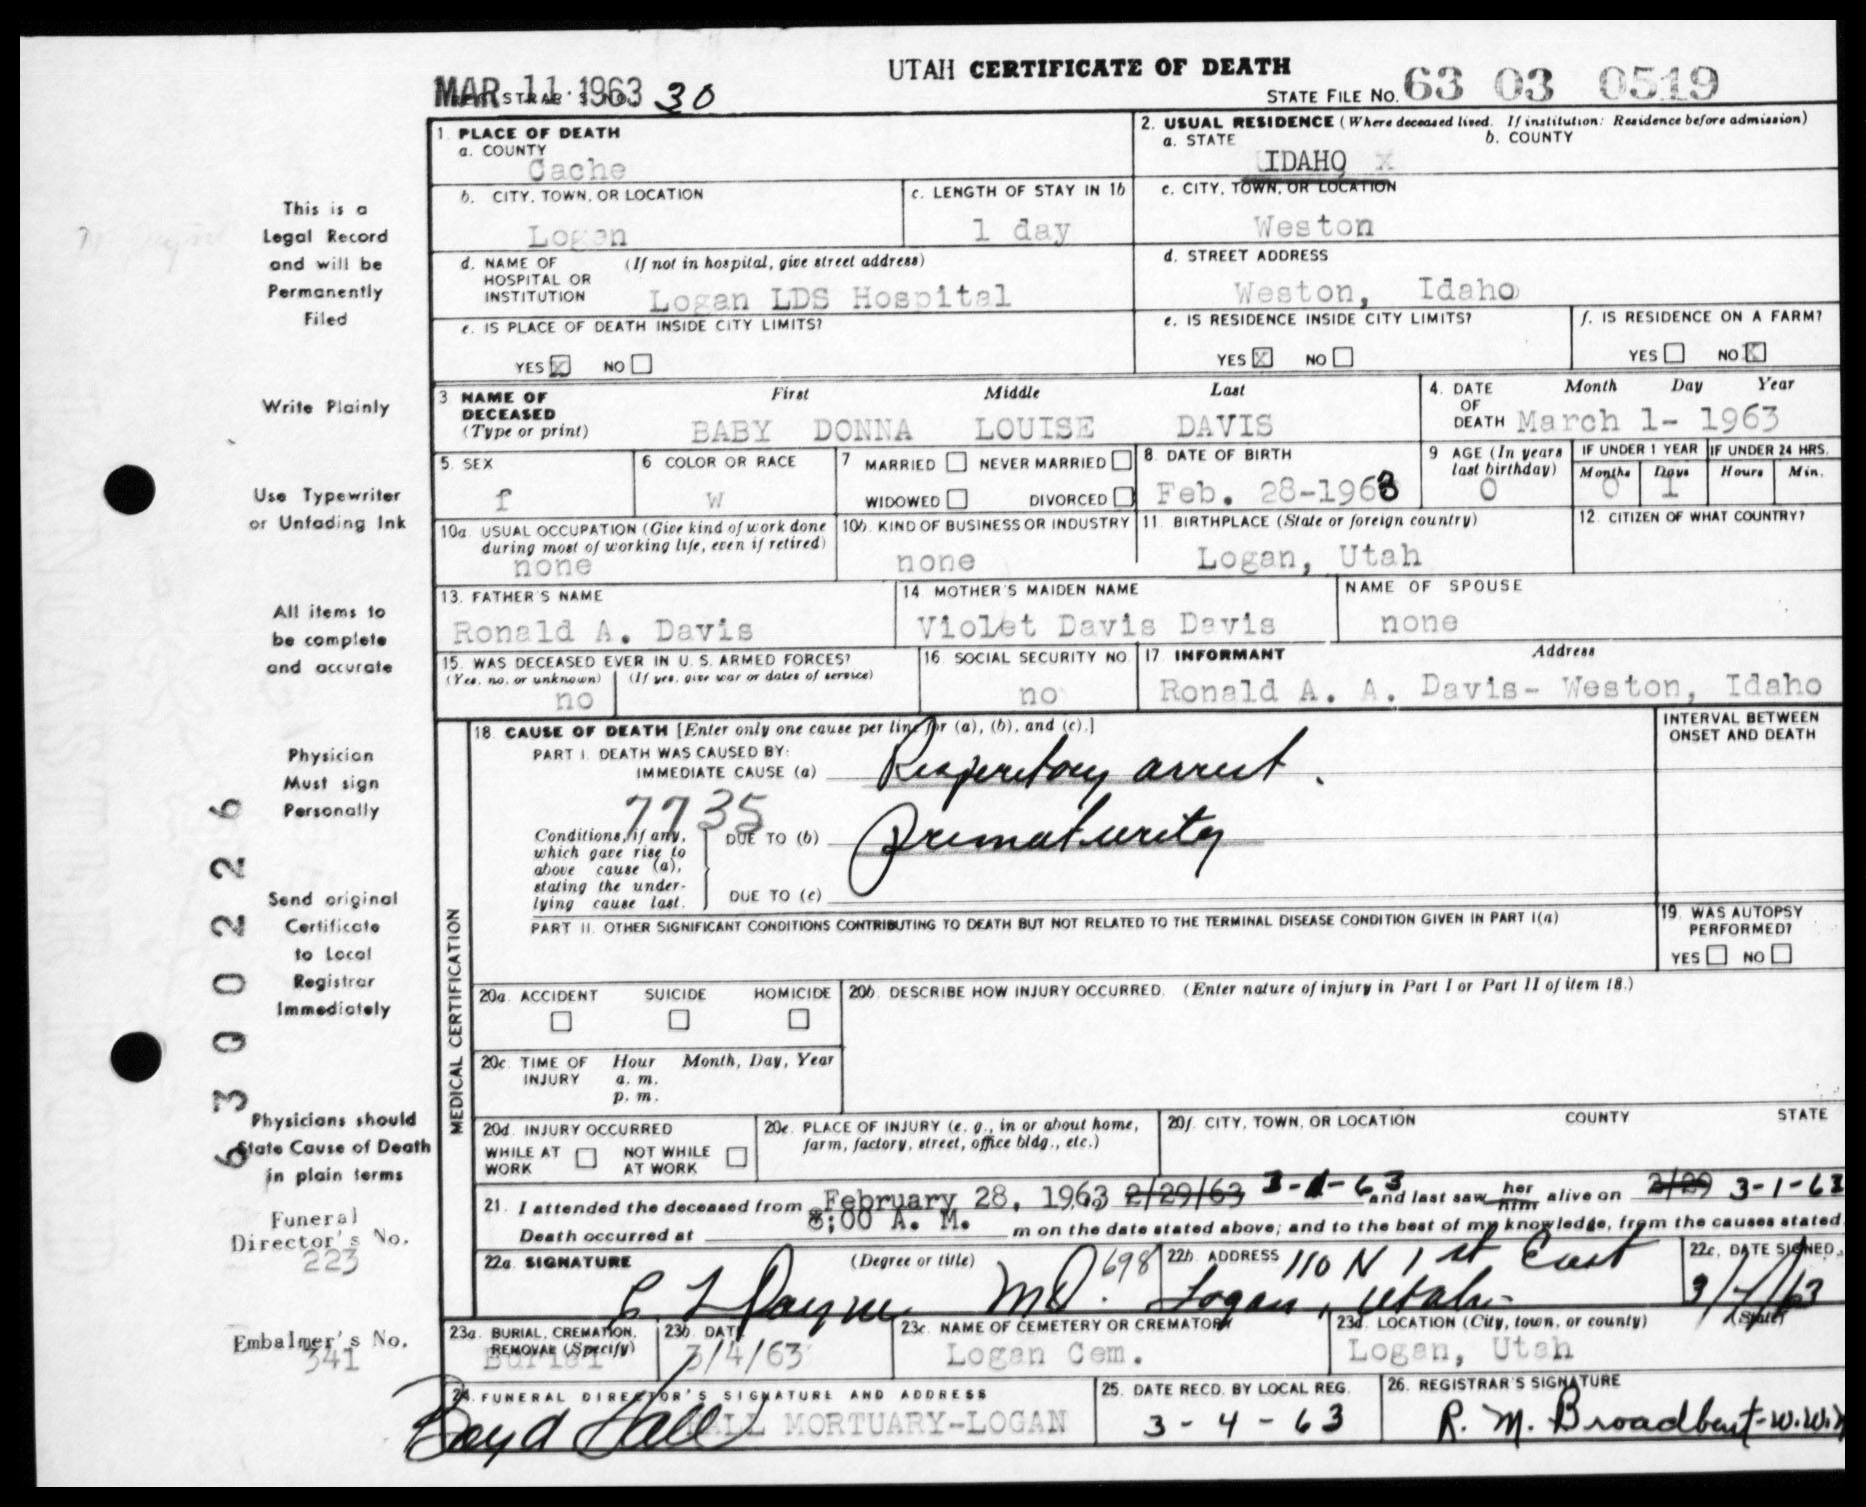 UTAH CERTIFICATE OF DEATH
MAR 11 1963 30
REGISTRAR'S NO.
STATE FILE NO. 63 03 0519
1. PLACE OF DEATH
a. COUNTY
Cache
2. USUAL RESIDENCE (Where deceased lived. If institution: Residence before admission)
a. STATE b. COUNTY
IDAHO X
b. CITY, TOWN, OR LOCATION
Logan
c. LENGTH OF STAY IN 1b
1 day
c. CITY, TOWN, OR LOCATION
Weston
d. NAME OF HOSPITAL OR INSTITUTION (If not in hospital, give street address)
Logan LDS Hospital
d. STREET ADDRESS
Weston, Idaho
e. IS PLACE OF DEATH INSIDE CITY LIMITS?
YES X NO
e. IS RESIDENCE INSIDE CITY LIMITS?
YES X NO
f. IS RESIDENCE ON A FARM?
YES NO X
3 NAME OF DECEASED (Type or print)
First Middle Last
BABY DONNA LOUISE DAVIS
4. DATE OF DEATH Month Day Year
March 1- 1963
5. SEX
f
6 COLOR OR RACE
W
7 MARRIED NEVER MARRIED
WIDOWED DIVORCED
8. DATE OF BIRTH
Feb. 28-1963
9 AGE (In years last birthday)
0
IF UNDER 1 YEAR
Months Days
0 1
IF UNDER 24 HRS.
Hours Min.
10a. USUAL OCCUPATION (Give kind of work done during most of working life, even if retired)
none
10b. KIND OF BUSINESS OR INDUSTRY
none
11. BIRTHPLACE (State or foreign country)
Logan, Utah
12. CITIZEN OF WHAT COUNTRY?
13. FATHER'S NAME
Ronald A. Davis
14 MOTHER'S MAIDEN NAME
Violet Davis Davis
NAME OF SPOUSE
none
15. WAS DECEASED EVER IN U. S. ARMED FORCES?
(Yes, no, or unknown) (If yes, give war or dates of service)
no
16 SOCIAL SECURITY NO.
no
17. INFORMANT Address
Ronald A. A. Davis- Weston, Idaho
MEDICAL CERTIFICATION
18 CAUSE OF DEATH [Enter only one cause per line for (a), (b), and (c).]
PART I. DEATH WAS CAUSED BY:
IMMEDIATE CAUSE (a) Respiratory arrest.
INTERVAL BETWEEN ONSET AND DEATH
7735
Conditions, if any, which gave rise to above cause (a), stating the underlying cause last.
DUE TO (b) Prematurity
DUE TO (c)
PART II. OTHER SIGNIFICANT CONDITIONS CONTRIBUTING TO DEATH BUT NOT RELATED TO THE TERMINAL DISEASE CONDITION GIVEN IN PART I(a)
19. WAS AUTOPSY PERFORMED?
YES NO
20a. ACCIDENT SUICIDE HOMICIDE
20b. DESCRIBE HOW INJURY OCCURRED. (Enter nature of injury in Part I or Part II of item 18.)
20c. TIME OF INJURY Hour Month, Day, Year
a. m.
p. m.
20d. INJURY OCCURRED
WHILE AT WORK NOT WHILE AT WORK
20e. PLACE OF INJURY (e. g., in or about home, farm, factory, street, office bldg., etc.)
20f. CITY, TOWN, OR LOCATION COUNTY STATE
21. I attended the deceased from February 28, 1963 to 2/29/63 3-1-63 and last saw her him alive on 2/29 3-1-63
Death occurred at 8:00 A. M. m on the date stated above; and to the best of my knowledge, from the causes stated.
22a. SIGNATURE (Degree or title)
C L Payne MD. 698
22b. ADDRESS 110 N 1st East
Logan, Utah-
22c. DATE SIGNED
3/1/63
23a. BURIAL, CREMATION, REMOVAL (Specify)
Burial
23b. DATE
3/4/63
23c. NAME OF CEMETERY OR CREMATORY
Logan Cem.
23d. LOCATION (City, town, or county) (State)
Logan, Utah
24. FUNERAL DIRECTOR'S SIGNATURE AND ADDRESS
Boyd Hall HALL MORTUARY-LOGAN
25. DATE RECD. BY LOCAL REG.
3-4-63
26. REGISTRAR'S SIGNATURE
R. M. Broadbent-W.W.
This is a
Legal Record
and will be
Permanently
Filed
Write Plainly
Use Typewriter
or Unfading Ink
All items to
be complete
and accurate
Physician
Must sign
Personally
Send original
Certificate
to Local
Registrar
Immediately
Physicians should
State Cause of Death
in plain terms
Funeral
Director's No.
223
Embalmer's No.
341
6390226